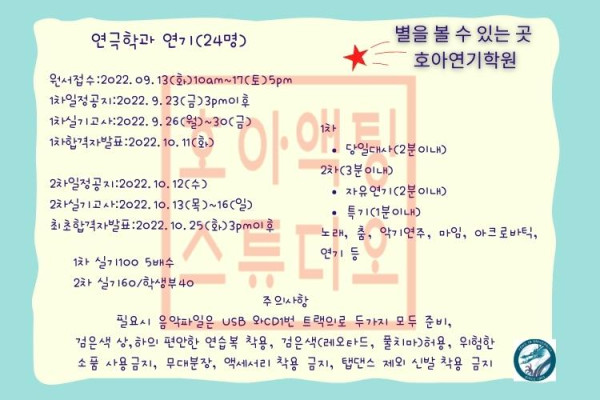 연극학과 연기(24명)
별을 볼 수 있는 곳
호아연기학원
원서접수:2022. 09. 13(화)10am~17(토)5pm
1차일정공지:2022. 9. 23(금)3pm이후
1차실기고사:2022. 9. 26(월)~30(금)
1차합격자발표:2022. 10. 11(화)
2차일정공지:2022. 10. 12(수)
2차실기고사:2022. 10. 13(목)~16(일)
최초합격자발표:2022. 10. 25(화)3pm이후
1차 실기100 5배수
2차 실기60/학생부40
1차
• 당일대사(2분이내)
2차(3분이내)
• 자유연기(2분이내)
• 특기(1분이내)
노래, 춤, 악기연주, 마임, 아크로바틱,
연기 등
주의사항
필요시 음악파일은 USB 와CD1번 트랙으로 두가지 모두 준비,
검은색 상,하의 편안한 연습복 착용, 검은색(레오타드, 풀치마)허용, 위험한
소품 사용금지, 무대분장, 액세서리 착용 금지, 탭댄스 제외 신발 착용 금지
호아액팅
스튜디오